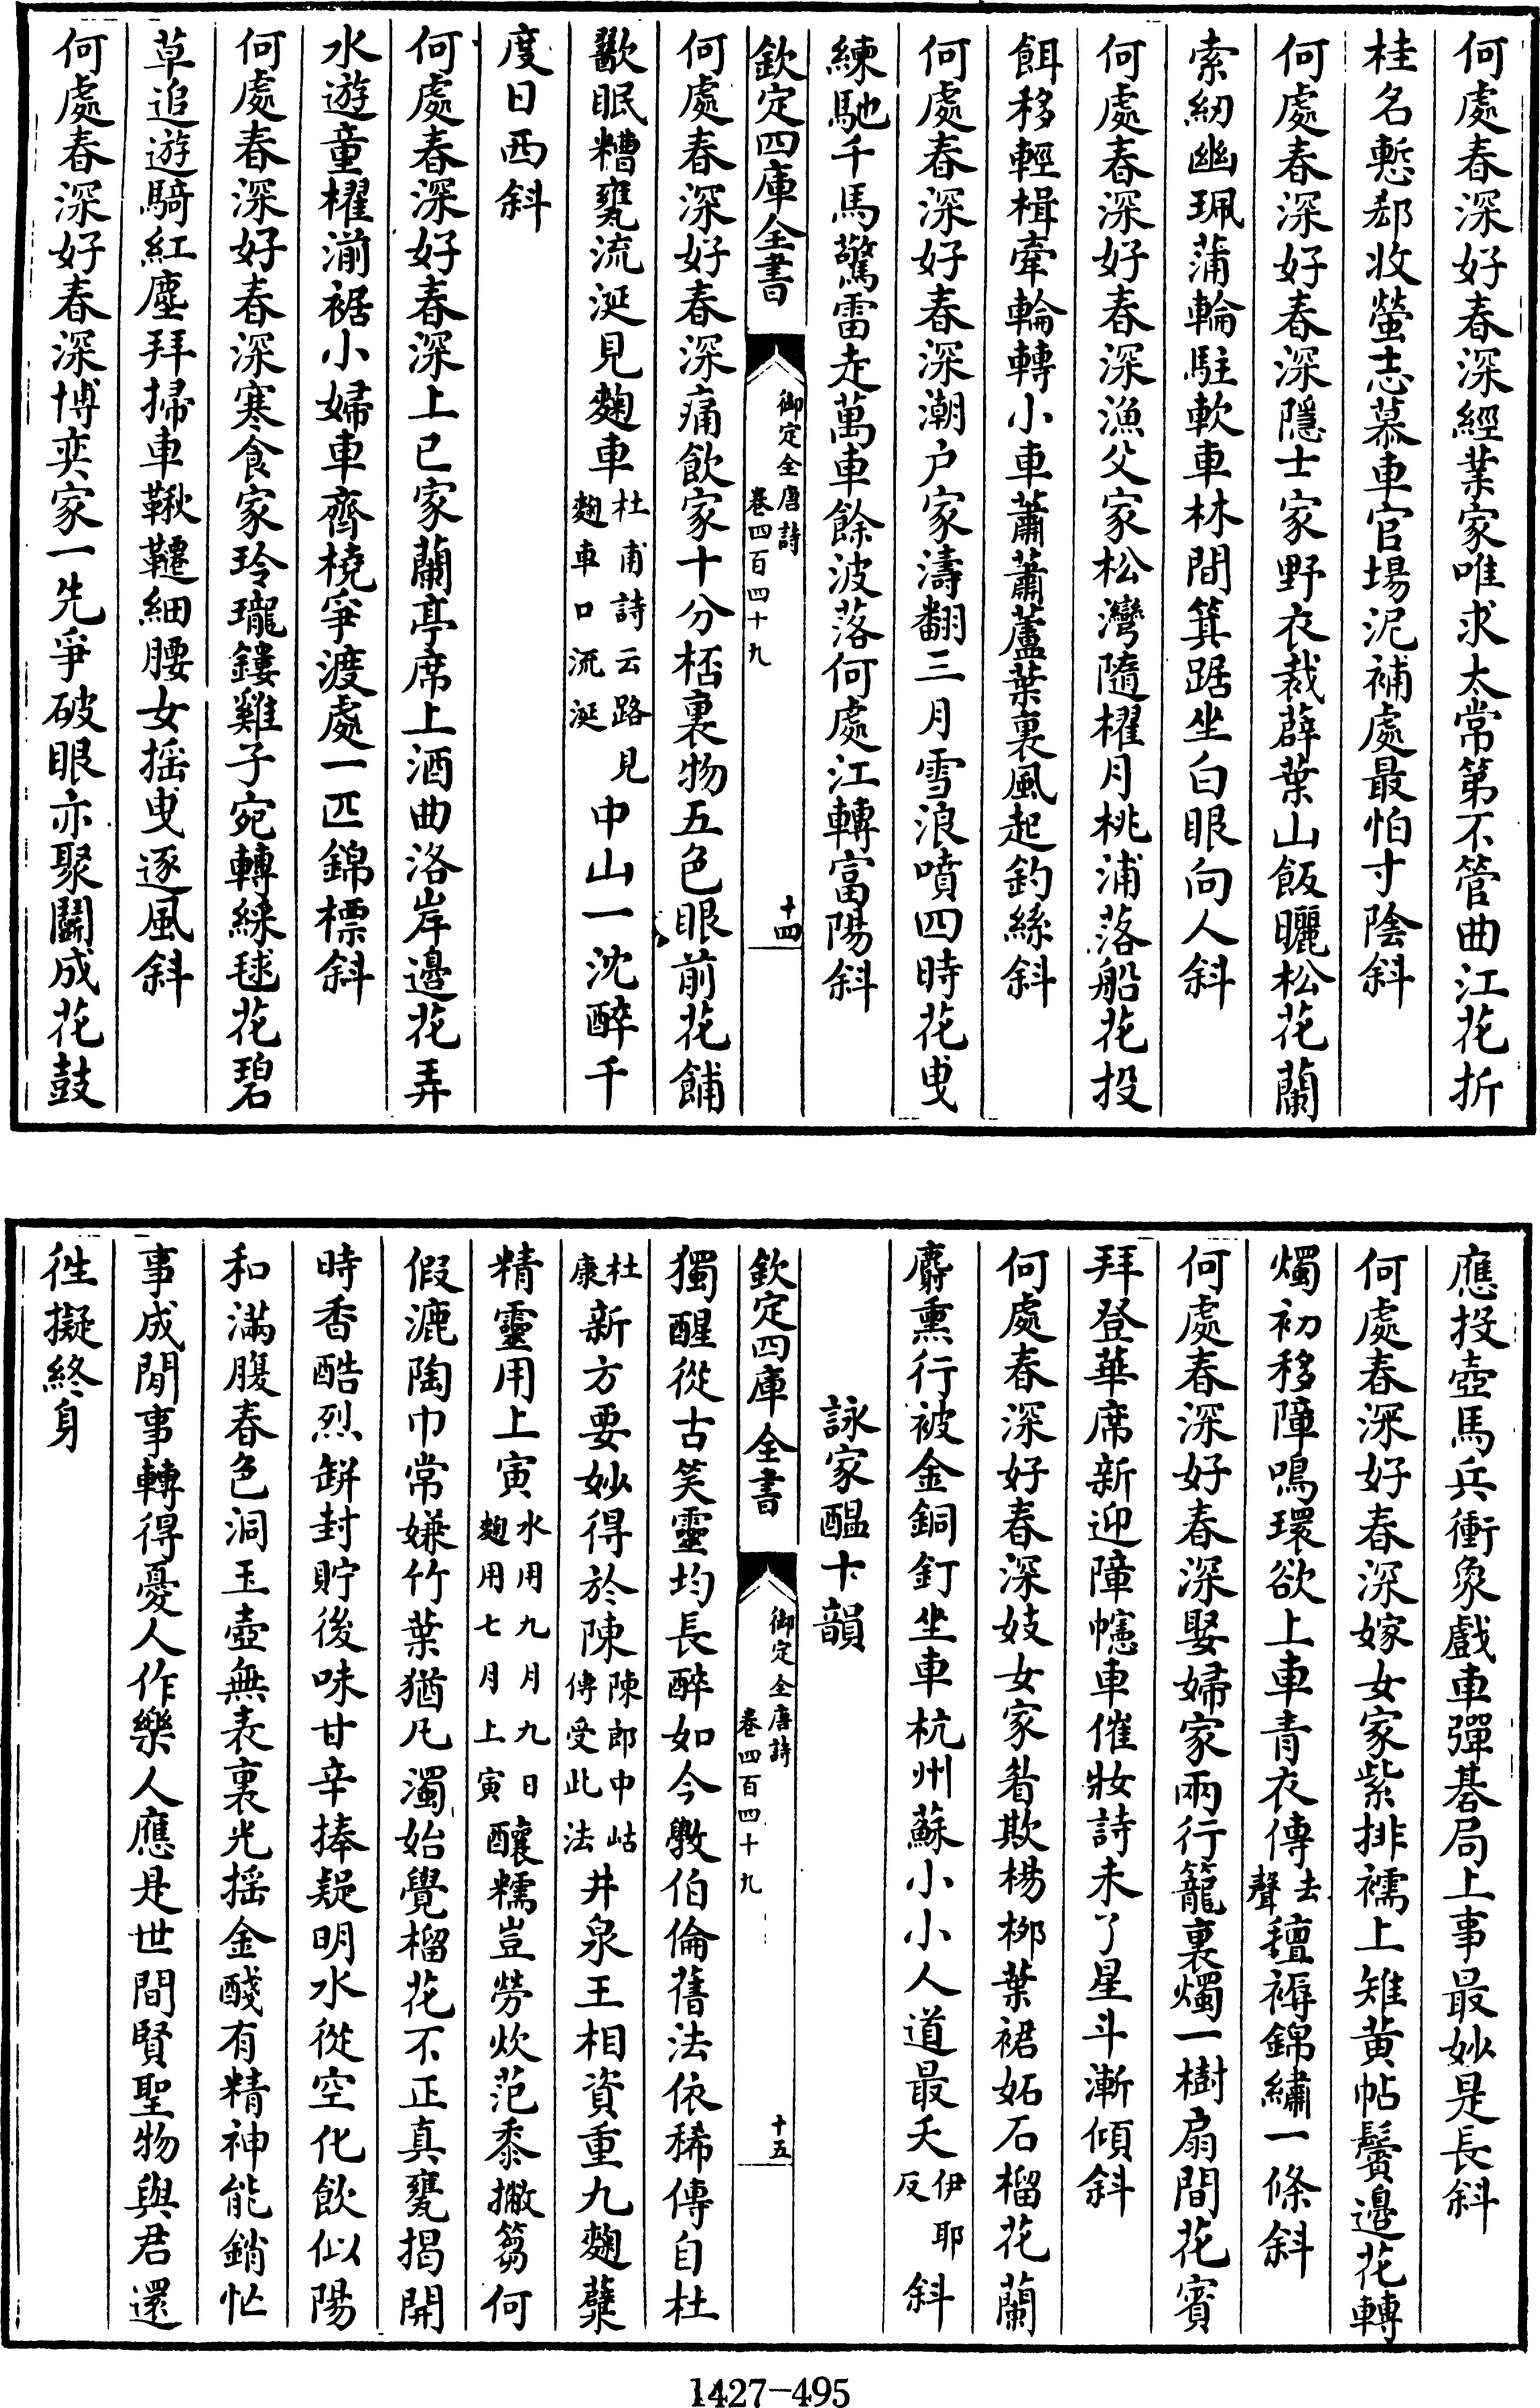 何處春深好春深經業家唯求太常第不管曲江花折
桂名慙郄收螢志慕車官場泥補處最怕寸陰斜
何處春深好春深隱士家野衣裁薜葉山飯曬松花蘭
索紉幽珮蒲輪駐軟車林間箕踞坐白眼向人斜
何處春深好春深漁父家松灣隨櫂月桃浦落船花投
餌移輕楫牽輪轉小車蕭蕭蘆葉裏風起釣絲斜
何處春深好春深潮户家濤翻三月雪浪噴四時花曵
練馳千馬驚雷走萬車餘波落何處江轉富陽斜
欽定四庫全書 御定全唐詩 卷四百四十九 十四
何處春深好春深痛飲家十分桮裏物五色眼前花餔
歠眠糟甕流涎見麴車杜甫詩云路見麴車口流涎中山一沈醉千
度日西斜
何處春深好春深上巳家蘭亭席上酒曲洛岸邊花弄
水遊童櫂湔裾小婦車齊橈爭渡處一匹錦標斜
何處春深好春深寒食家玲瓏鏤雞子宛轉綵毬花碧
草追遊騎紅塵拜掃車鞦韆細腰女摇曳逐風斜
何處春深好春深博奕家一先爭破眼亦聚鬬成花鼓
應投壺馬兵衝象戲車彈碁局上事最妙是長斜
何處春深好春深嫁女家紫排襦上雉黄帖鬢邉花轉
燭初移障鳴環欲上車青衣傳去聲氊褥錦繡一條斜
何處春深好春深娶婦家兩行籠裏燭一樹扇間花賓
拜登華席新迎障幰車催妝詩未了星斗漸傾斜
何處春深好春深妓女家眉欺楊桞葉裙妬石榴花蘭
麝熏行被金銅釘坐車杭州蘇小小人道最夭伊耶反斜
詠家醖十韻
欽定四庫全書 御定全唐詩 卷四百四十九 十五
獨醒從古笑靈均長醉如今斆伯倫舊法依稀傳自杜
杜康新方要妙得於陳陳郎中岵傳受此法井泉王相資重九麴糵
精靈用上寅水用九月九日麴用七月上寅釀糯豈勞炊范黍撇篘何
假漉陶巾常嫌竹葉猶凡濁始覺榴花不正真甕揭開
時香酷烈缾封貯後味甘辛捧疑明水從空化飲似陽
和滿腹春色洞玉壺無表裏光摇金醆有精神能銷忙
事成閒事轉得憂人作樂人應是世間賢聖物與君還
徃擬終身
1427-495